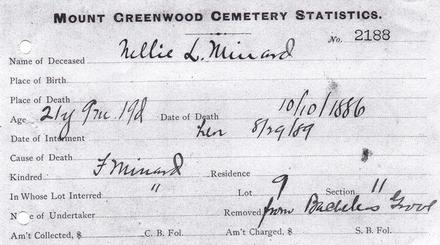 MOUNT GREENWOOD CEMETERY STATISTICS.
No. 2188
Name of Deceased Nellie L. Minard
Place of Birth
Place of Death
Age 21y 9m 19d Date of Death 10/10/1886
Date of Interment her 8/29/89
Cause of Death
Kindred F Minard Residence
In Whose Lot Interred " Lot 9 Section 11
Name of Undertaker Removed from Bachelors Grove
Am't Collected, $ C. B. Fol. Am't Charged, $ S. B. Fol.